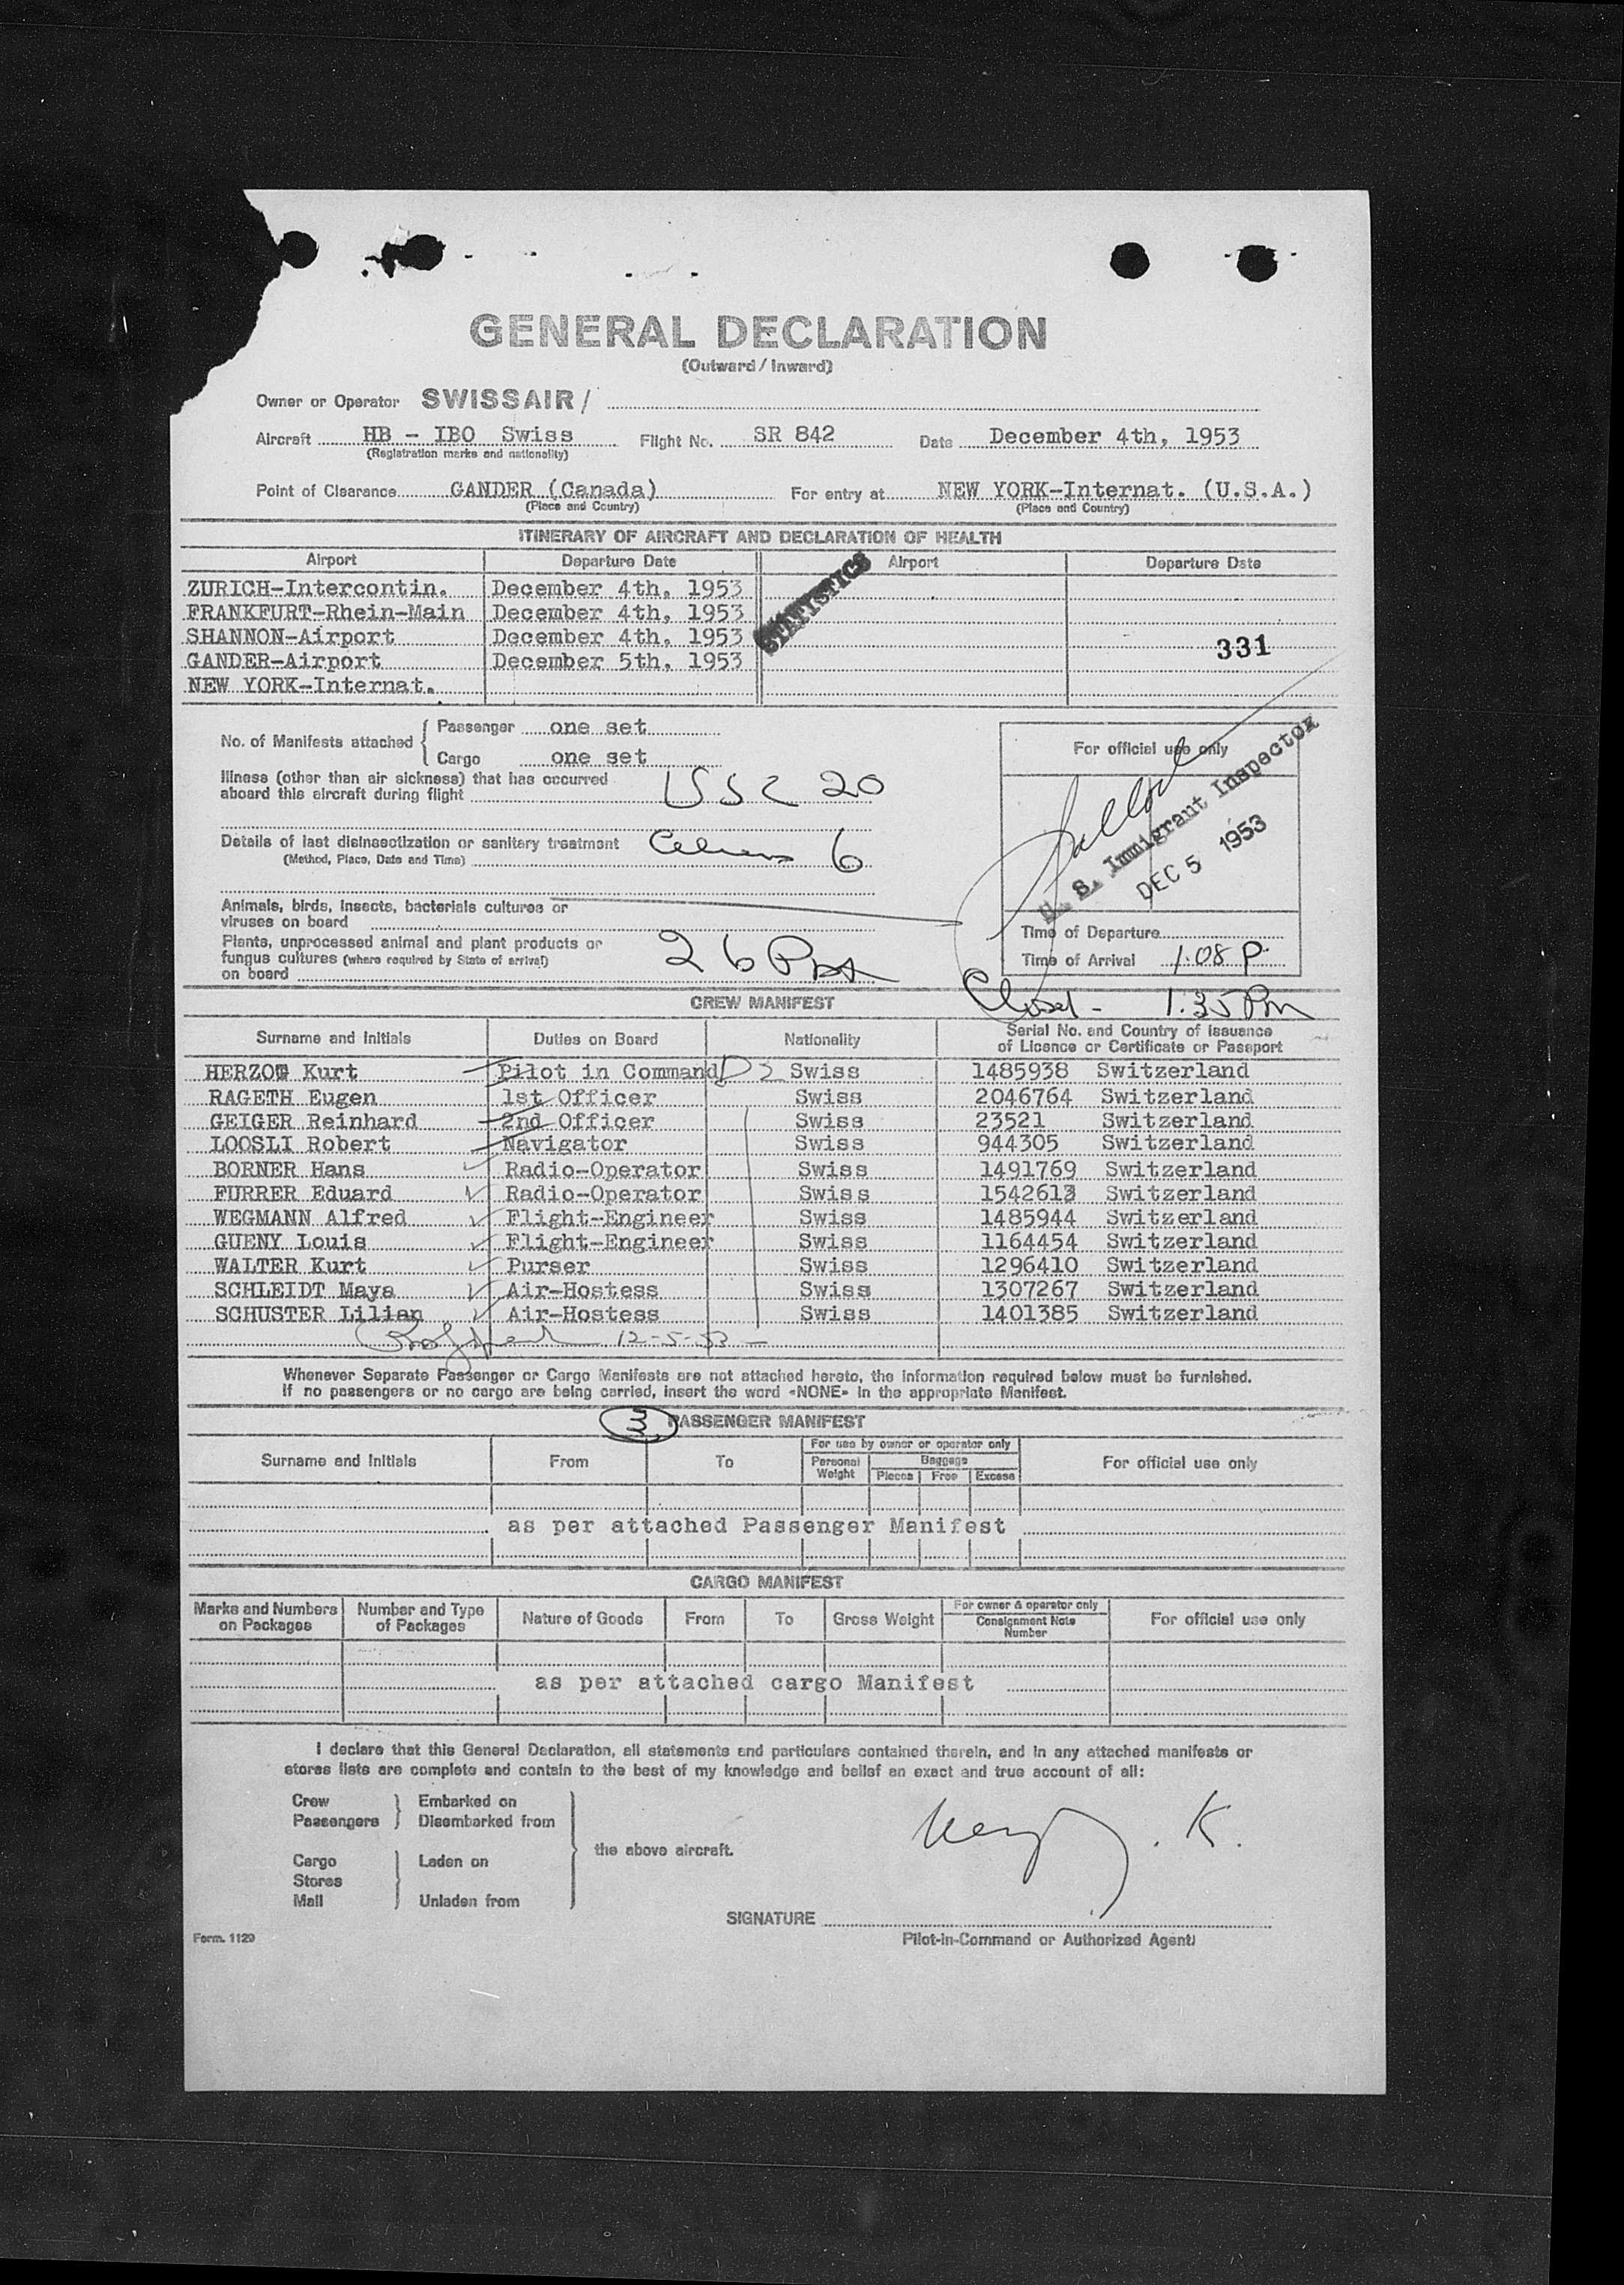 GENERAL DECLARATION
(Outward / Inward)
Owner or Operator SWISSAIR /
Aircraft HB - IBO Swiss Flight No. SR 842 Date December 4th, 1953
(Registration marks and nationality)
Point of Clearance GANDER (Canada) For entry at NEW YORK-Internat. (U.S.A.)
(Place and Country) (Place and Country)
ITINERARY OF AIRCRAFT AND DECLARATION OF HEALTH
Airport Departure Date Airport Departure Date
STATISTICS
ZURICH-Intercontin. December 4th, 1953
FRANKFURT-Rhein-Main December 4th, 1953
SHANNON-Airport December 4th, 1953 331
GANDER-Airport December 5th, 1953
NEW YORK-Internat.
No. of Manifests attached { Passenger one set
Cargo one set
For official use only
Illness (other than air sickness) that has occurred
aboard this aircraft during flight USC 20
U. S. Immigrant Inspector
DEC 5 1953
Details of last disinsectization or sanitary treatment 6
(Method, Place, Date and Time)
Animals, birds, insects, bacterials cultures or
viruses on board
Plants, unprocessed animal and plant products or
fungus cultures (where required by State of arrival)
on board 26
Time of Departure
Time of Arrival 1.08 P.
Closed - 1:35 Pm
CREW MANIFEST
Surname and Initials Duties on Board Nationality Serial No. and Country of issuance
of Licence or Certificate or Passport
HERZOG Kurt Pilot in Command Swiss 1485938 Switzerland
RAGETH Eugen 1st Officer Swiss 2046764 Switzerland
GEIGER Reinhard 2nd Officer Swiss 23521 Switzerland
LOOSLI Robert Navigator Swiss 944305 Switzerland
BORNER Hans Radio-Operator Swiss 1491769 Switzerland
FURRER Eduard Radio-Operator Swiss 1542613 Switzerland
WEGMANN Alfred Flight-Engineer Swiss 1485944 Switzerland
GUENY Louis Flight-Engineer Swiss 1164454 Switzerland
WALTER Kurt Purser Swiss 1296410 Switzerland
SCHLEIDT Maya Air-Hostess Swiss 1307267 Switzerland
SCHUSTER Lilian Air-Hostess Swiss 1401385 Switzerland
12-5-53 -
Whenever Separate Passenger or Cargo Manifests are not attached hereto, the information required below must be furnished.
If no passengers or no cargo are being carried, insert the word «NONE» in the appropriate Manifest.
3 PASSENGER MANIFEST
Surname and Initials From To For use by owner or operator only For official use only
Personal Weight Baggage
Pieces Free Excess
as per attached Passenger Manifest
CARGO MANIFEST
Marks and Numbers on Packages Number and Type of Packages Nature of Goods From To Gross Weight For owner & operator only Consignment Note Number For official use only
as per attached cargo Manifest
I declare that this General Declaration, all statements and particulars contained therein, and in any attached manifests or
stores lists are complete and contain to the best of my knowledge and belief an exact and true account of all:
Crew Embarked on
Passengers Disembarked from
the above aircraft.
Cargo Laden on
Stores
Mail Unladen from
K.
SIGNATURE
Form. 1129 Pilot-in-Command or Authorized Agent